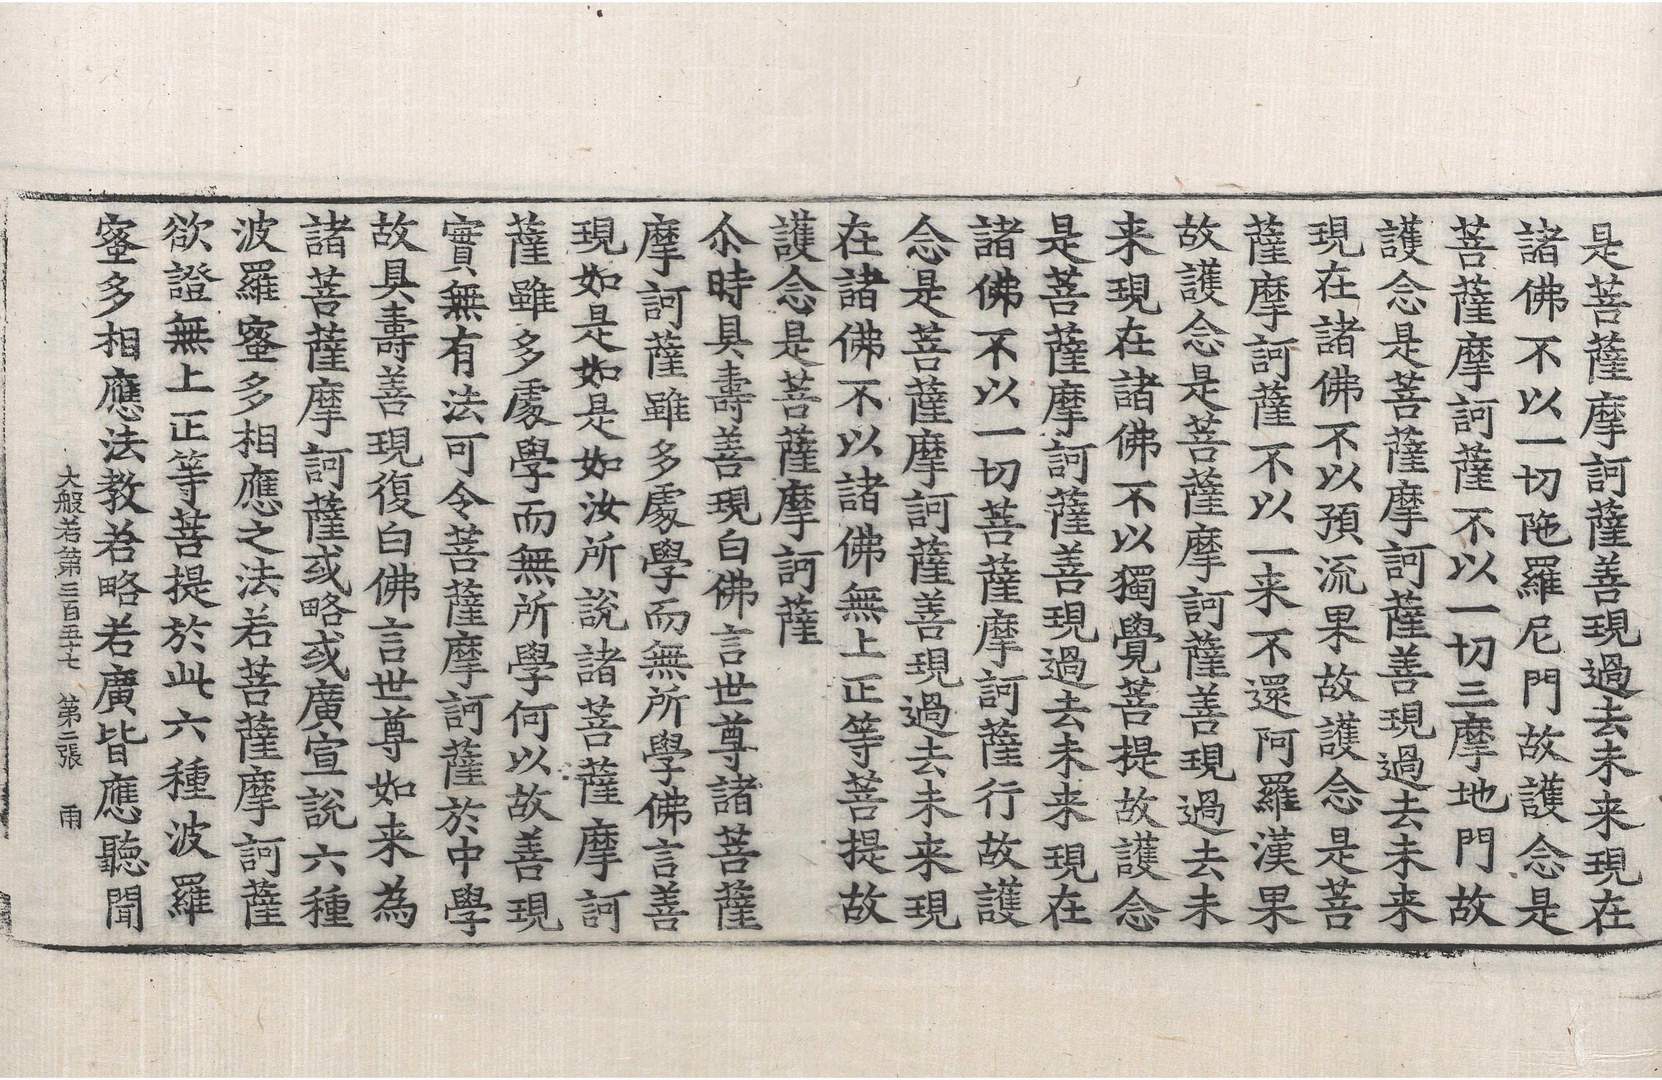 是菩薩摩訶薩善現過去未来現在
諸佛不以一切陁羅尼門故護念是
菩薩摩訶薩不以一切三摩地門故
護念是菩薩摩訶薩善現過去未来
現在諸佛不以預流果故護念是菩
薩摩訶薩不以一来不還阿羅漢果
故護念是菩薩摩訶薩善現過去未
来現在諸佛不以獨覺菩提故護念
是菩薩摩訶薩善現過去未来現在
諸佛不以一切菩薩摩訶薩行故護
念是菩薩摩訶薩善現過去未来現
在諸佛不以諸佛無上正等菩提故
護念是菩薩摩訶薩
尒時具壽善現白佛言世尊諸菩薩
摩訶薩雖多處學而無所學佛言善
現如是如是如汝所說諸菩薩摩訶
薩雖多處學而無所學何以故善現
實無有法可令菩薩摩訶薩於中學
故具壽善現復白佛言世尊如来為
諸菩薩摩訶薩或略或廣宣說六種
波羅蜜多相應之法若菩薩摩訶薩
欲證無上正等菩提於此六種波羅
蜜多相應法教若略若廣皆應聽聞
大般若第三百五十七 第二張 雨